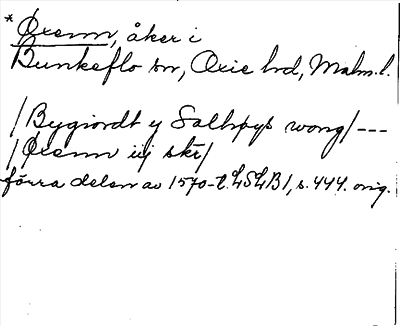 * Øxenn, åker i
Bunkeflo sn, Oxie hd, Malm. l.
/Bygiordt y Salhøys wong/---
/Øxenn iij skr/
förra delen av 1570-t. LSLB1, s. 444. orig.